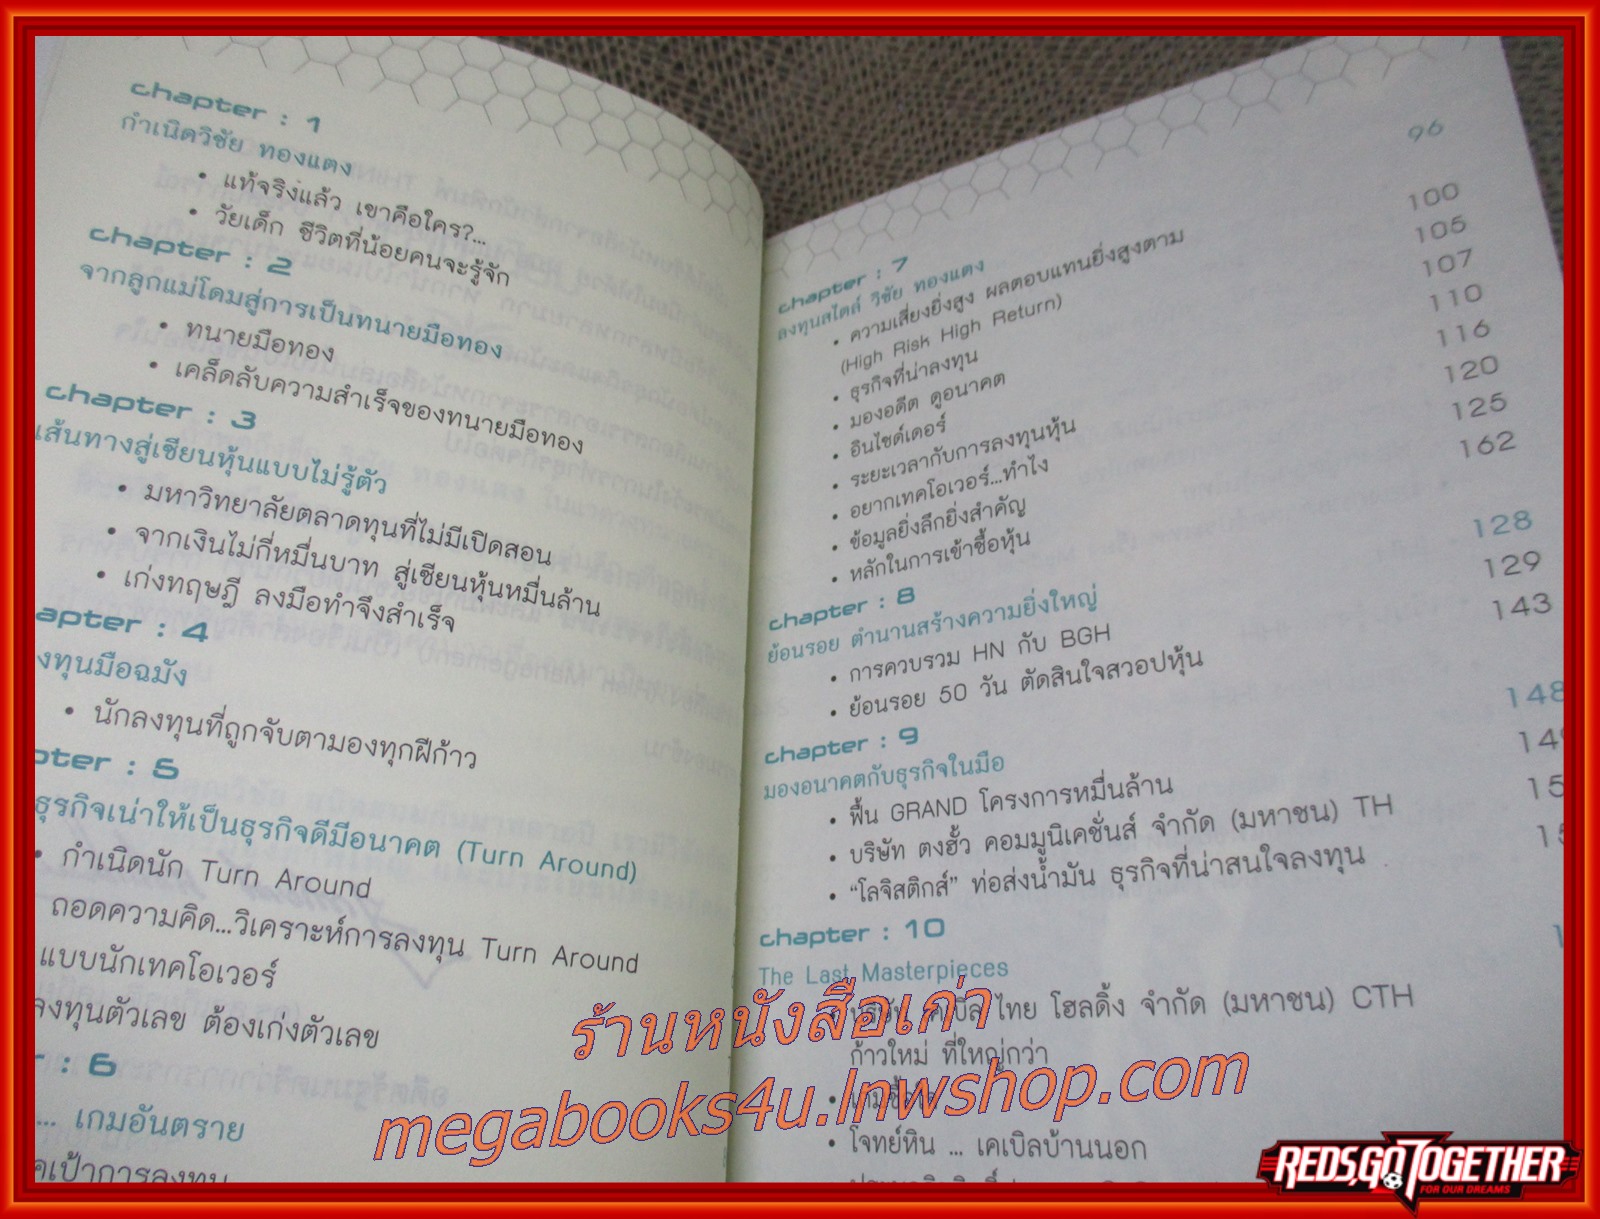 chapter : 1
กำเนิดวิชัย ทองแตง
• แท้จริงแล้ว เขาคือใคร?...
• วัยเด็ก ชีวิตที่น้อยคนจะรู้จัก
chapter : 2
จากลูกแม่โดมสู่การเป็นทนายมือทอง
• ทนายมือทอง
• เคล็ดลับความสำเร็จของทนายมือทอง
chapter : 3
เส้นทางสู่เซียนหุ้นแบบไม่รู้ตัว
• มหาวิทยาลัยตลาดทุนที่ไม่มีเปิดสอน
• จากเงินไม่กี่หมื่นบาท สู่เซียนหุ้นหมื่นล้าน
• เก่งทฤษฎี ลงมือทำจึงสำเร็จ
apter : 4
งทุนมือฉมัง
• นักลงทุนที่ถูกจับตามองทุกฝีก้าว
pter : 5
ธุรกิจเน่าให้เป็นธุรกิจดีมีอนาคต (Turn Around)
• กำเนิดนัก Turn Around
ถอดความคิด...วิเคราะห์การลงทุน Turn Around
แบบนักเทคโอเวอร์
ลงทุนตัวเลข ต้องเก่งตัวเลข
r : 6
... เกมอันตราย
คเป้าการลงทุน
96
chapter : 7
ลงทุนสไตล์ วิชัย ทองแตง
• ความเสี่ยงยิ่งสูง ผลตอบแทนยิ่งสูงตาม 100
(High Risk High Return)
• ธุรกิจที่น่าลงทุน 105
• มองอดีต ดูอนาคต 107
• อินไซด์เดอร์ 110
• ระยะเวลากับการลงทุนหุ้น 116
• อยากเทคโอเวอร์...ทำไง 120
• ข้อมูลยิ่งลึกยิ่งสำคัญ 125
• หลักในการเข้าซื้อหุ้น 162
chapter : 8
ย้อนรอย ตำนานสร้างความยิ่งใหญ่ 128
• การควบรวม HN กับ BGH 129
• ย้อนรอย 50 วัน ตัดสินใจสวอปหุ้น 143
chapter : 9
มองอนาคตกับธุรกิจในมือ 148
• ฟื้น GRAND โครงการหมื่นล้าน 149
• บริษัท ตงฮั้ว คอมมูนิเคชั่นส์ จำกัด (มหาชน) TH 15
• “โลจิสติกส์” ท่อส่งน้ำมัน ธุรกิจที่น่าสนใจลงทุน 15
chapter : 10
The Last Masterpieces 1
• บริษัท เคเบิล ไทย โฮลดิ้ง จำกัด (มหาชน) CTH
ก้าวใหม่ ที่ใหญ่กว่า
• โจทย์หิน ... เคเบิลบ้านนอก
ร้านหนังสือเก่า
megabooks4u.lnwshop.com
REDS,GO TOGETHER
FOR OUR DREAMS